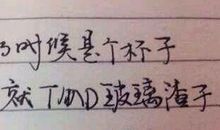 时候是个杯子
就TMD玻璃渣子